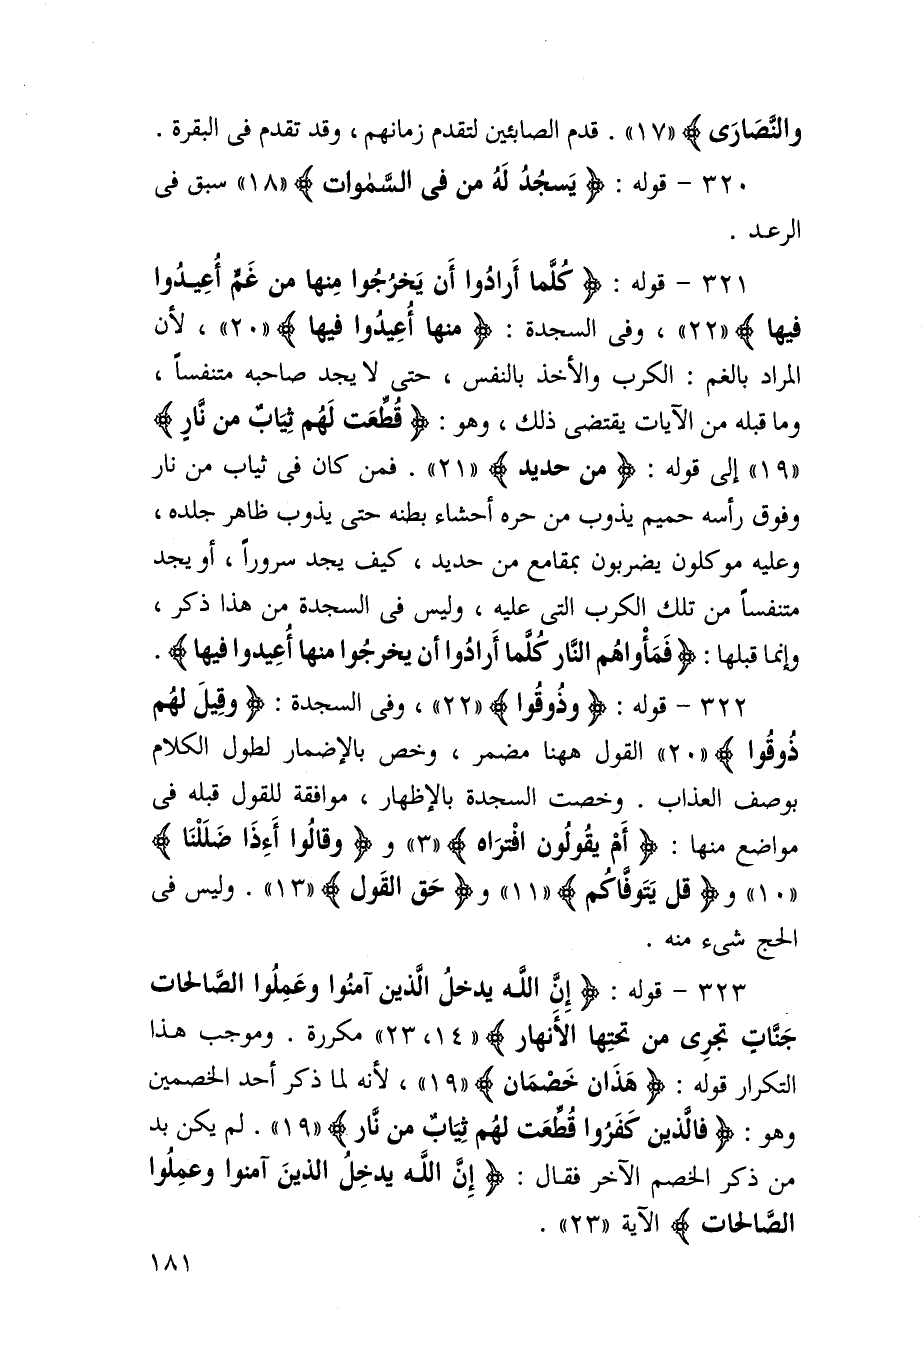 والنَّصَارَى ﴾ «١٧» . قدم الصابئين لتقدم زمانهم ، وقد تقدم فى البقرة .
٣٢٠ – قوله : ﴿ يَسجُدُ لَهُ من فى السَّمٰوات ﴾ «١٨» سبق فى
الرعـد .
٣٢١ – قوله : ﴿ كُلَّما أَرادُوا أَن يَخرُجُوا مِنها من غَمٍّ أُعِيـدُوا
فيها ﴾ «٢٢» ، وفى السجدة : ﴿ منها أُعيدُوا فيها ﴾ «٢٠» ، لأن
المراد بالغم : الكرب والأخذ بالنفس ، حتى لا يجد صاحبه متنفساً ،
وما قبله من الآيات يقتضى ذلك ، وهو : ﴿ قُطِّعَت لَهُم ثِيَابٌ من نَّارٍ ﴾
«١٩» إلى قوله : ﴿ من حديد ﴾ «٢١» . فمن كان فى ثياب من نار
وفوق رأسه حميم يذوب من حره أحشاء بطنه حتى يذوب ظاهر جلده ،
وعليه موكلون يضربون بمقامع من حديد ، كيف يجد سروراً ، أو يجد
متنفساً من تلك الكرب التى عليه ، وليس فى السجدة من هذا ذكر ،
وإنما قبلها : ﴿ فَمَأْواهُم النَّار كُلَّما أَرادُوا أن يخرجُوا منها أُعِيدوا فيها ﴾ .
٣٢٢ – قوله : ﴿ وذُوقُوا ﴾ «٢٢» ، وفى السجدة : ﴿ وقِيلَ لهُم
ذُوقُوا ﴾ «٢٠» القول ههنا مضمر ، وخص بالإضمار لطول الكلام
بوصف العذاب . وخصت السجدة بالإظهار ، موافقة للقول قبله فى
مواضع منها : ﴿ أَمْ يقُولُون افْترَاه ﴾ «٣» و ﴿ وقالُوا أَءِذَا ضَلَلْنَا ﴾
«١٠» و ﴿ قل يَتَوفَّاكُم ﴾ «١١» و ﴿ حَق القَول ﴾ «١٣» . وليس فى
الحج شىء منه .
٣٢٣ – قوله : ﴿ إِنَّ اللَّـه يدخلُ الَّذين آمنُوا وعَمِلُوا الصَّالحات
جَنَّاتٍ تجرِى من تحتِها الأَنهار ﴾ «١٤، ٢٣» مكررة . وموجب هـذا
التكرار قوله : ﴿ هَذَان خَصْمَان ﴾ «١٩» ، لأنه لما ذكر أحد الخصمين
وهو : ﴿ فالَّذين كَفَرُوا قُطِّعَت لهُم ثِيَابٌ من نَّار ﴾ «١٩» . لم يكن بد
من ذكر الخصم الآخر فقـال : ﴿ إِنَّ اللَّـه يدخِلُ الذينَ آمنوا وعمِلُوا
الصَّالحات ﴾ الآية «٢٣» .
١٨١